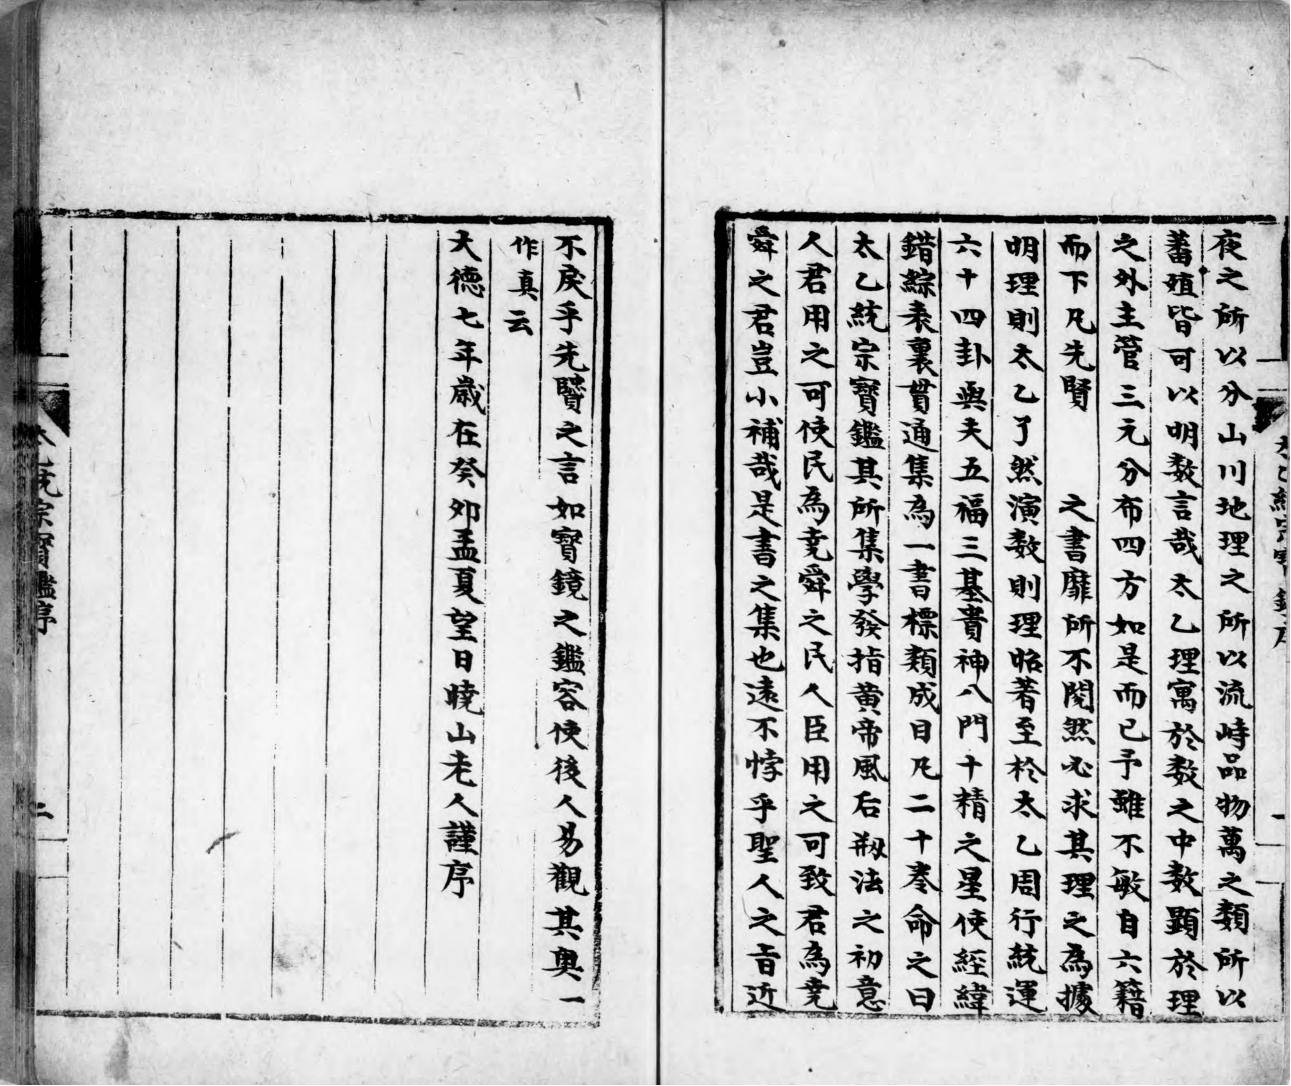 夜之所以分山川地理之所以流峙品物萬之類所以
蕃殖皆可以明数言哉太乙理寓於数之中数顯於理
之外主管三元分布四方如是而已予雖不敏自六籍
而下凡先賢之書靡所不閱然必求其理之為據
明理則太乙了然演数則理昭著至於太乙周行統運
六十四卦與夫五福三基貴神八門十精之星使經緯
錯綜表裏貫通集為一書標類成目凡二十巻命之曰
太乙統宗寶鑑其所集學發指黄帝風后剙法之初意
人君用之可使民為堯舜之民人臣用之可致君為堯
舜之君豈小補哉是書之集也遠不悖乎聖人之旨近
不戾乎先賢之言如寳鏡之鑑容使後人易觀其奥一
作真云
大德七年歲在癸夘孟夏望日曉山老人謹序
太乙統宗寶鑑序
二